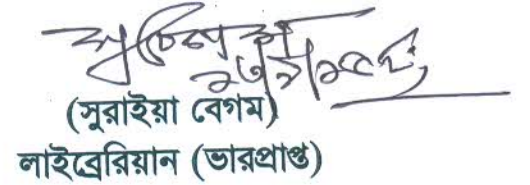 (সুরাইয়া বেগম)
লাইব্রেরিয়ান (ভারপ্রাপ্ত)